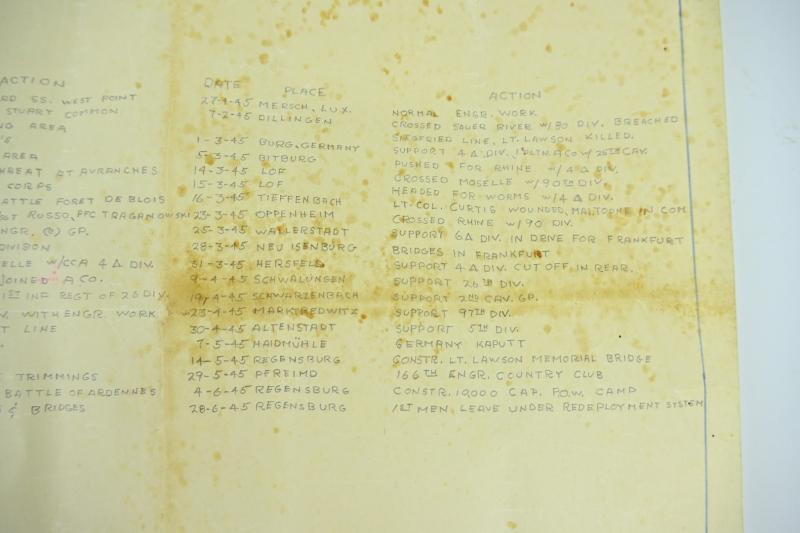 ACTION
RD SS. WEST POINT
STUART COMMON
NG AREA
AREA
HREAT AT AVRANCHES
CORPS
ATTLE FORET DE BLOIS
RUSSO, PFC TRAGANOWSKI
NGR. (C) GP.
DIVISION
ELLE W/CCA 4 Δ DIV.
JOINED A CO.
1ST INF REGT OF 26 DIV.
V. WITH ENGR. WORK
T LINE
TRIMMINGS
BATTLE OF ARDENNES
S & BRIDGES
DATE PLACE ACTION
27-1-45 MERSCH, LUX. NORMAL ENGR. WORK
7-2-45 DILLINGEN CROSSED SAUER RIVER W/80 DIV. BREACHED
SIEGFRIED LINE, LT. LAWSON KILLED.
1-3-45 BURG, GERMANY SUPPORT 4 Δ DIV. 1 PLTN. A CO W/ 25TH CAV.
5-3-45 BITBURG PUSHED FOR RHINE W/4 Δ DIV.
14-3-45 LOF CROSSED MOSELLE W/90TH DIV.
15-3-45 LOF HEADED FOR WORMS W/4 Δ DIV.
16-3-45 TIEFFENBACH LT. COL. CURTIS WOUNDED, MAJ. TOPHE IN COM
23-3-45 OPPENHEIM CROSSED RHINE W/90 DIV.
25-3-45 WALLERSTADT SUPPORT 6 Δ DIV. IN DRIVE FOR FRANKFURT
28-3-45 NEU ISENBURG BRIDGES IN FRANKFURT
31-3-45 HERSFELD SUPPORT 4 Δ DIV. CUT OFF IN REAR.
9-4-45 SCHWALUNGEN SUPPORT 26TH DIV.
19-4-45 SCHWARZENBACH SUPPORT 2ND CAV. GP.
23-4-45 MARKTREDWITZ SUPPORT 97TH DIV.
30-4-45 ALTENSTADT SUPPORT 5TH DIV.
7-5-45 HAIDMÜHLE GERMANY KAPUTT
14-5-45 REGENSBURG CONSTR. LT. LAWSON MEMORIAL BRIDGE
29-5-45 PFREIMD 166TH ENGR. COUNTRY CLUB
4-6-45 REGENSBURG CONSTR. 10,000 CAP. P.O.W. CAMP
28-6-45 REGENSBURG 1ST MEN LEAVE UNDER REDEPLOYMENT SYSTEM